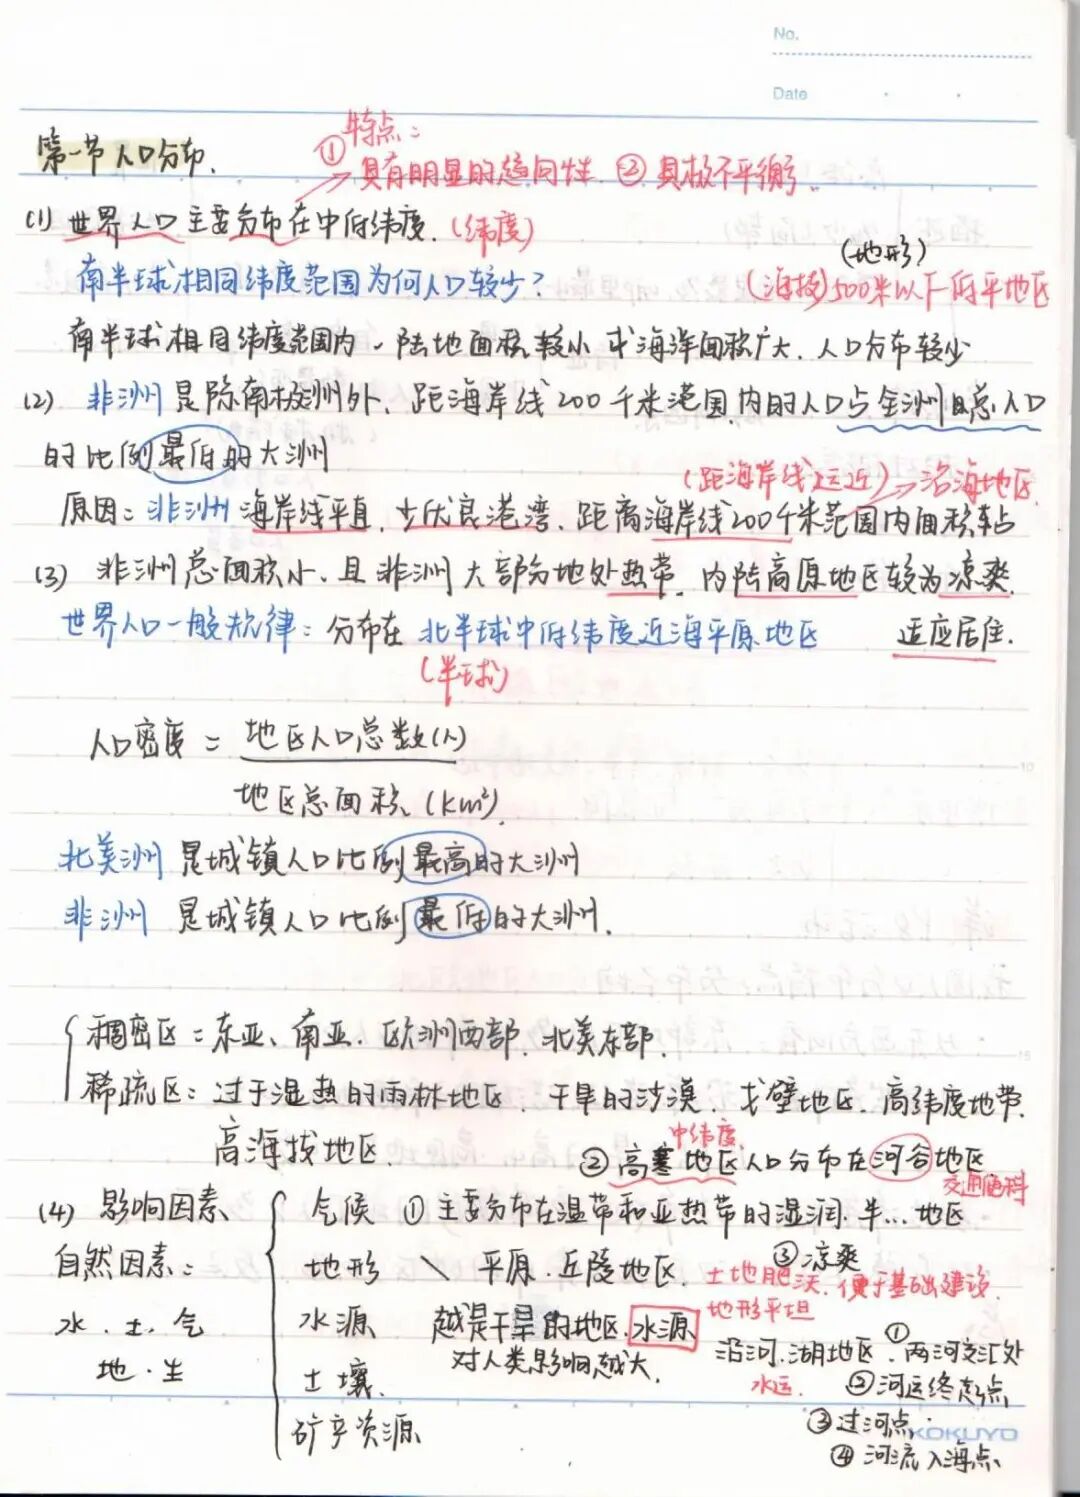 No.
Date
特点：
第一节 人口分布.
① 具有明显的趋向性 ② 具极不平衡.
(1) 世界人口主要分布在中低纬度. (纬度)
(地形)
南半球相同纬度范围为何人口较少？
(海拔)500米以下低平地区
南半球相同纬度范围内、陆地面积较小 或海洋面积广大、人口分布较少
(2) 非洲是除南极洲外、距海岸线200千米范围内的人口占全洲总人口
的比例最低的大洲
(距海岸线远近)→沿海地区.
原因：非洲海岸线平直、少优良港湾、距离海岸线200千米范围内面积占
(3) 非洲总面积小、且非洲大部分地处热带、内陆高原地区较为凉爽.
世界人口一般规律：分布在北半球中低纬度近海平原地区 适应居住.
(半球)
人口密度 = 地区人口总数(人)
地区总面积 (km²).
北美洲 是城镇人口比例最高的大洲
非洲 是城镇人口比例最低的大洲.
稠密区：东亚、南亚、欧洲西部、北美东部.
稀疏区：过于湿热的雨林地区、干旱的沙漠、戈壁地区、高纬度地带、
高海拔地区.
中纬度.
② 高寒地区人口分布在河谷地区
(4) 影响因素 气候 ① 主要分布在温带和亚热带的湿润、半… 地区
③ 凉爽
自然因素： 地形 \ 平原、丘陵地区. 土地肥沃、便于基础建设.
地形平坦
水、土、气 水源 越是干旱的地区、水源
对人类影响越大.
沿河、湖地区、① 两河交汇处
地、生 土壤. 水运. ② 河运终起点
③ 过河点.
矿产资源
KOKUYO
④ 河流入海点、